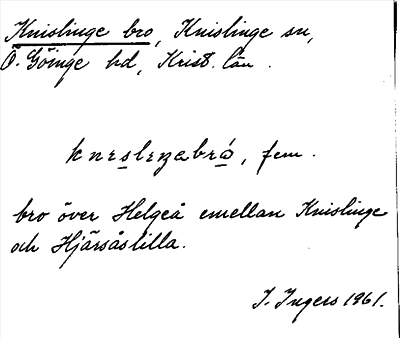 Knislinge bro, Knislinge sn,
Ö. Göinge hd, Krist. län.
kneslengabró, fem.
bro över Helgeå emellan Knislinge
och Hjärsåslilla.
I. Ingers 1961.